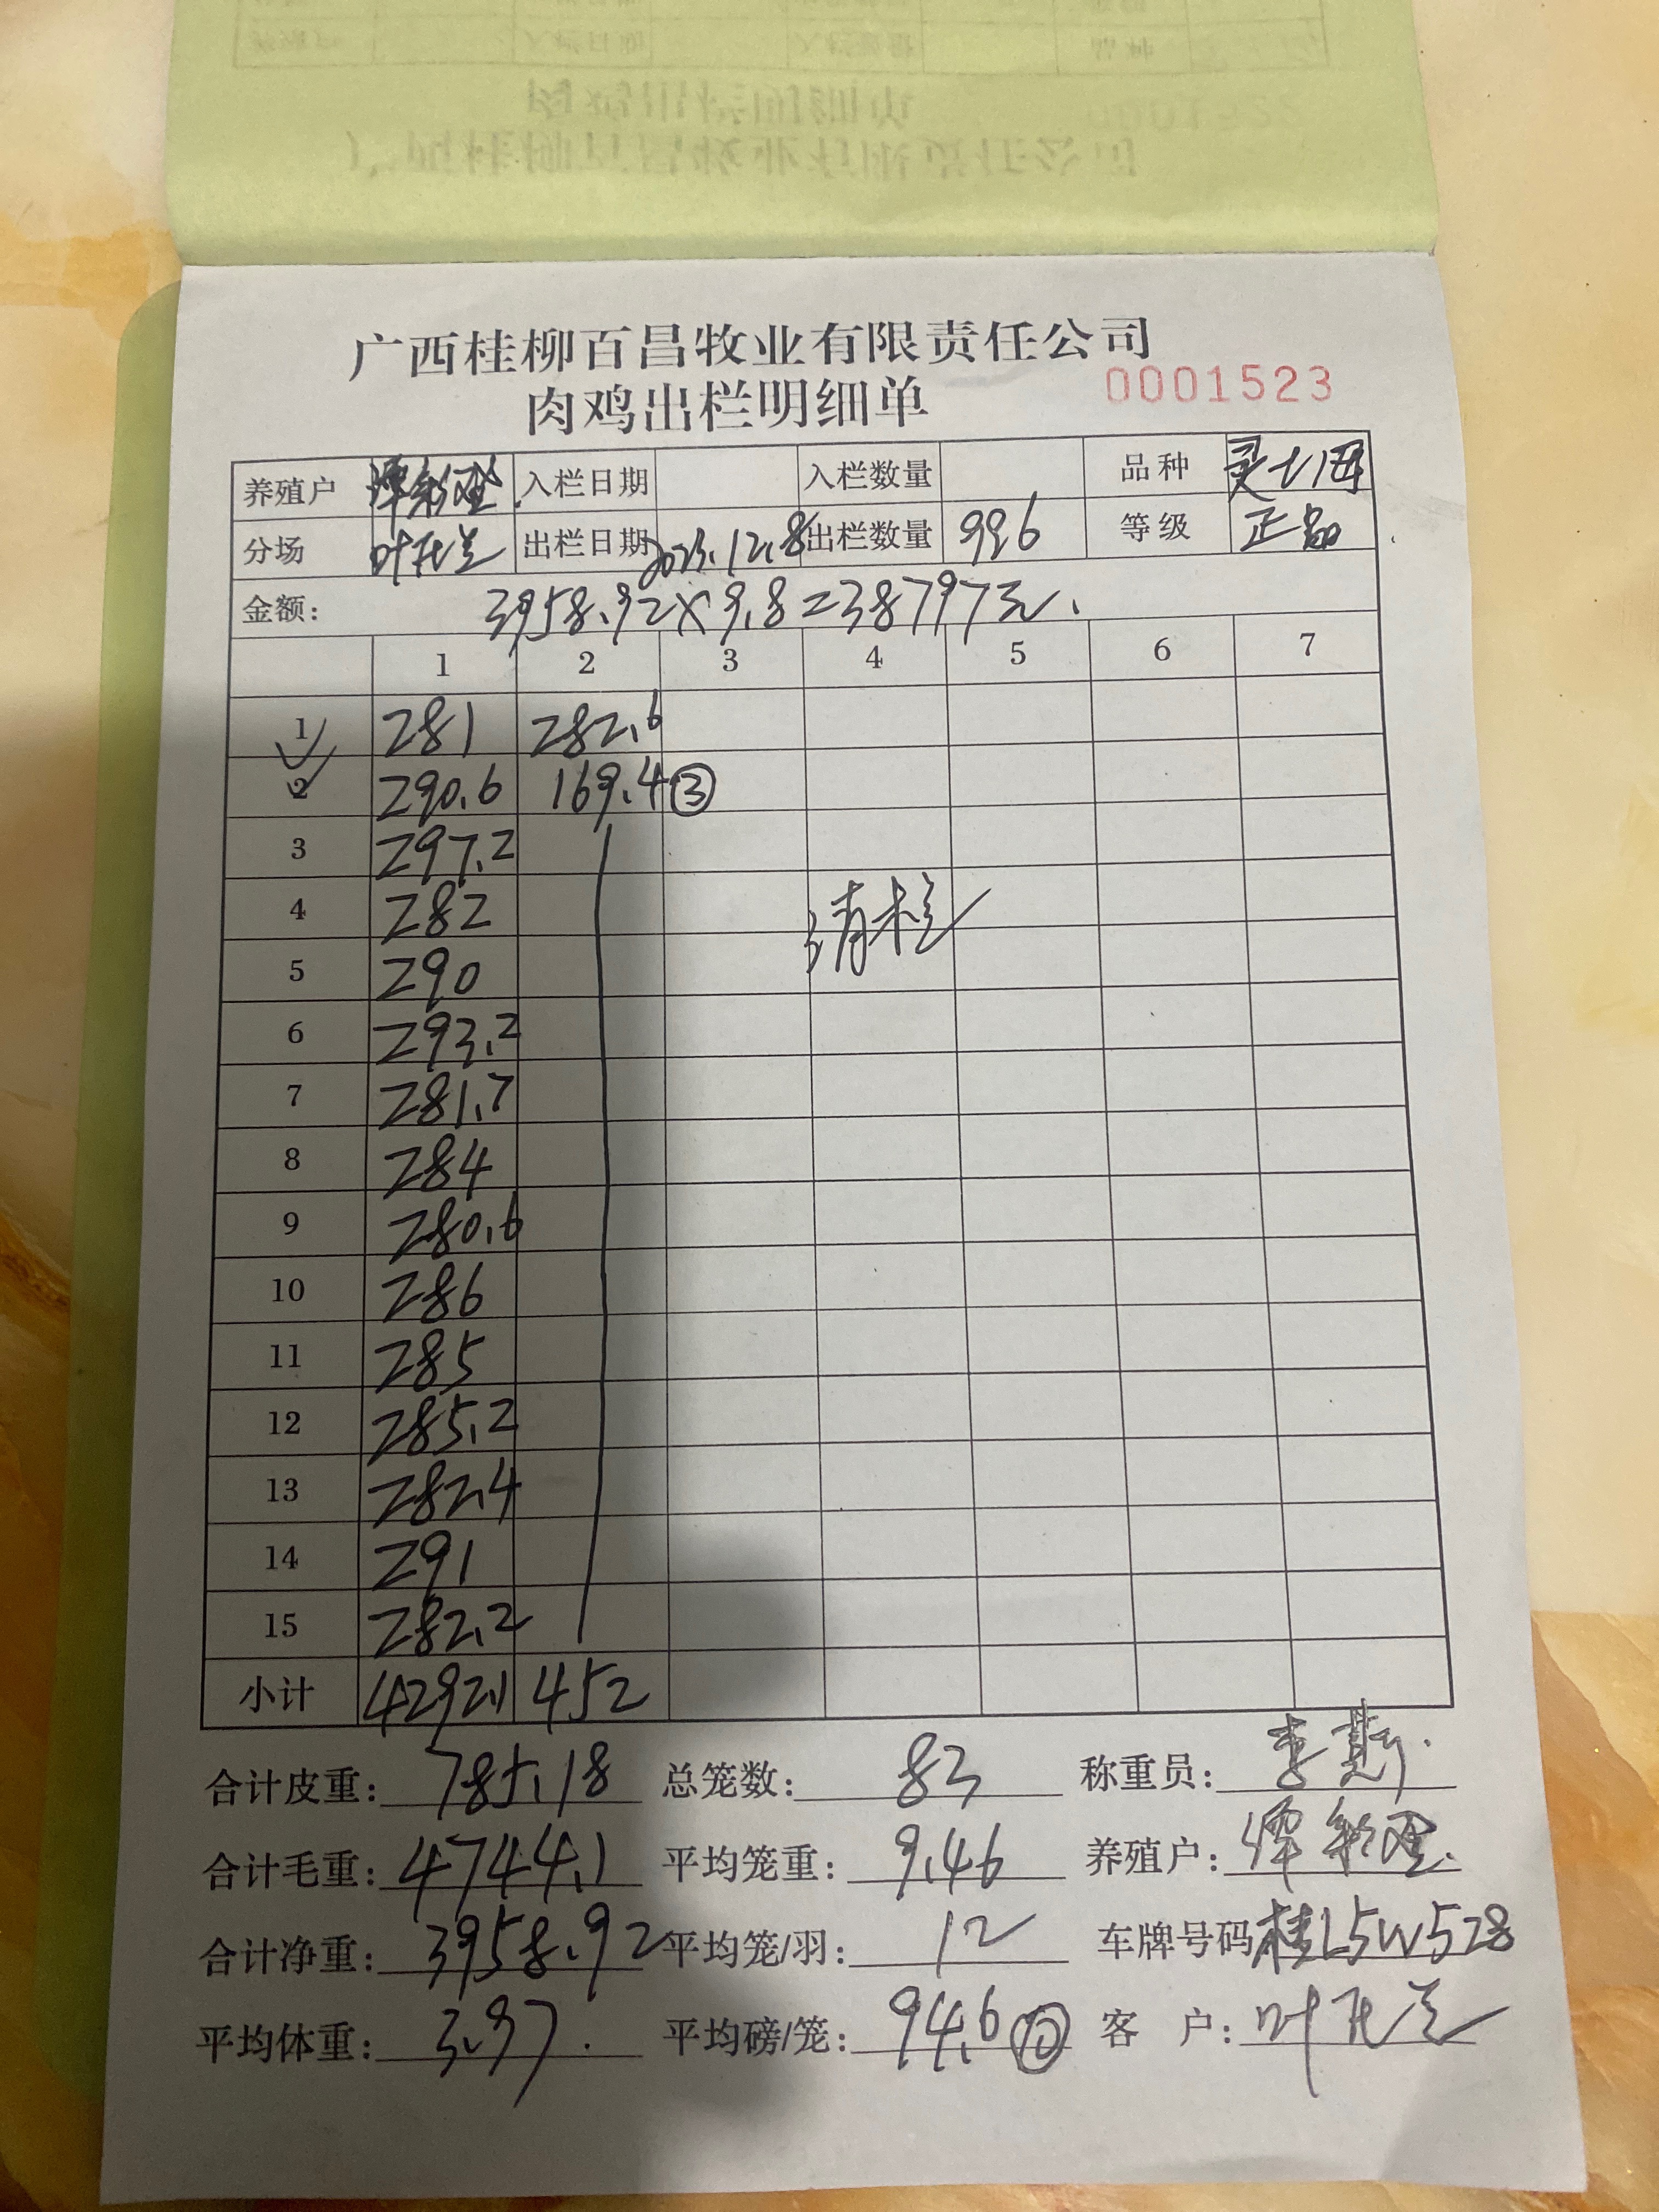 广西桂柳百昌牧业有限责任公司
肉鸡出栏明细单 0001523
养殖户 谭 入栏日期 入栏数量 品种 灵山
分场 叶 出栏日期 2023.12.8 出栏数量 996 等级 正品
金额: 3958.92×9.8=38797元.
1 2 3 4 5 6 7
1 281 282.6
2 290.6 169.4 ③
3 297.2
4 282 清栏
5 290
6 293.2
7 281.7
8 284
9 280.6
10 286
11 285
12 285.2
13 282.4
14 291
15 282.2
小计 4292.1 452
合计皮重: 785.18 总笼数: 83 称重员: 李
合计毛重: 4744.1 平均笼重: 9.46 养殖户: 谭
合计净重: 3958.92 平均笼/羽: 12 车牌号码 桂L5W528
平均体重: 3.97. 平均磅/笼: 94.6 ⑩ 客 户: 叶